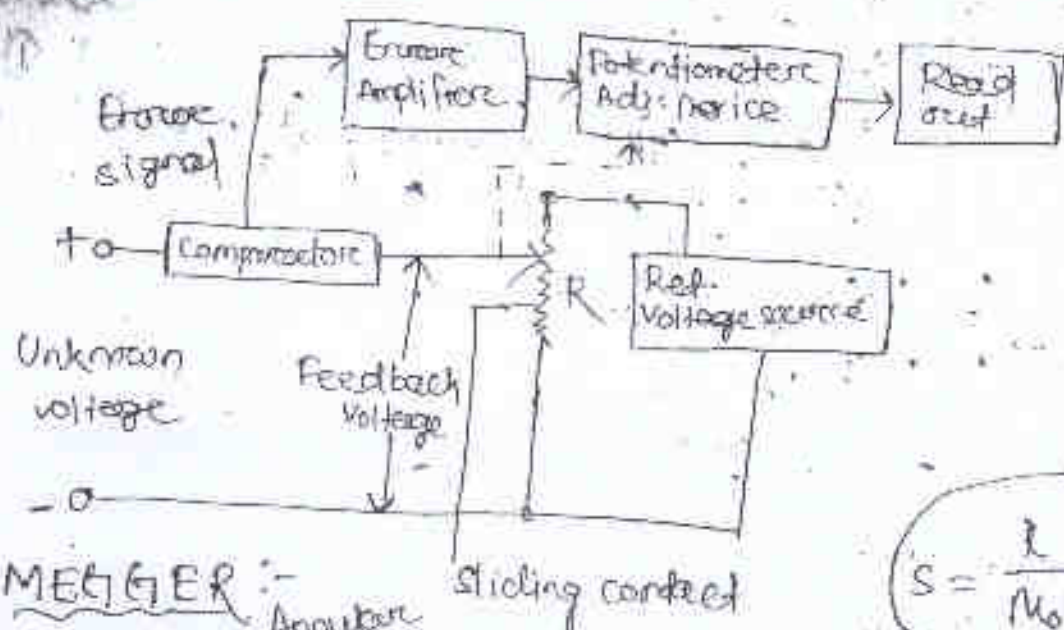 Error
Amplifier
Potentiometer
Adj. Device
Read
out
Error
signal
+
Comparator
R
Ref.
Voltage source
Unknown
voltage
Feedback
Voltage
-
MEGGER :-
Sliding contact
S =